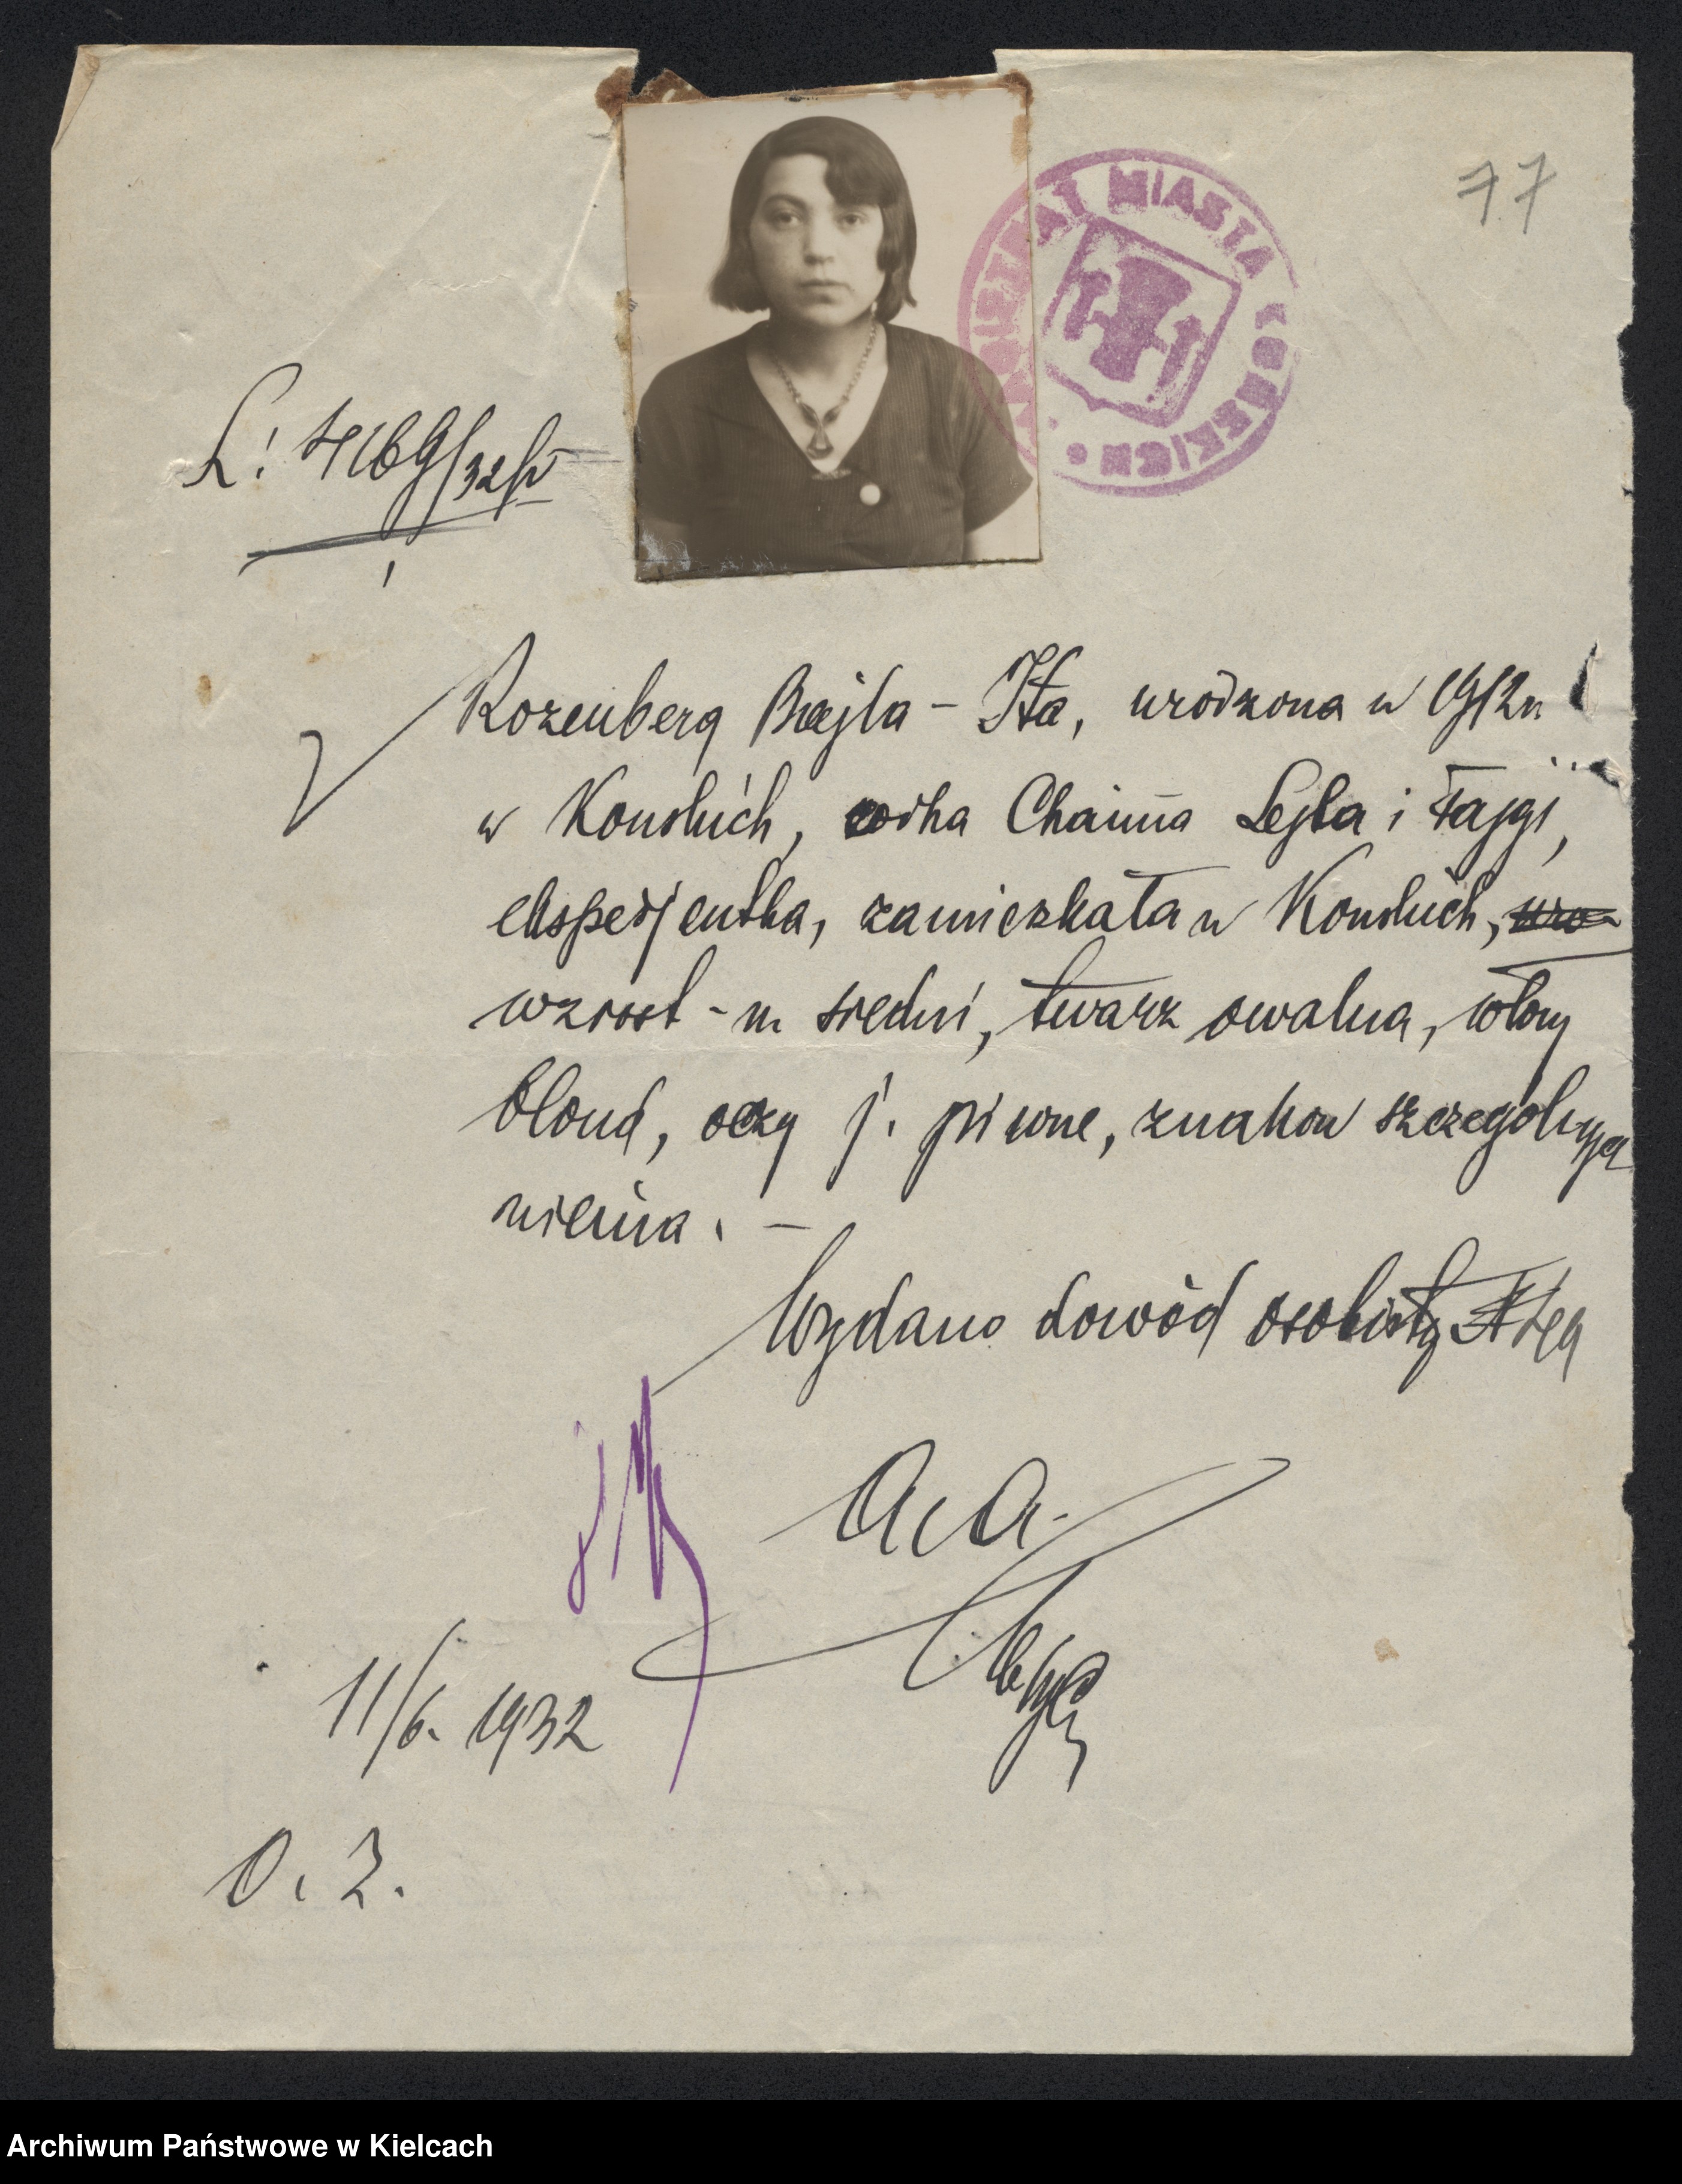 77
MAGISTRAT MIASTA KONSKICH
L: 4169/32/
Rozenberg Brajla - Ita, urodzona w 1912 r
w Konskich, corka Chaima Lejba i Fajgi,
ekspedjentka, zamieszkała w Konskich,
wzrost - m sredni, twarz owalna, włosy
blond, oczy j. piwne, znakow szczegolnych
niema. —
Wydano dowód osobisty
A.A.
11/6. 1932
O. Z.
Archiwum Państwowe w Kielcach